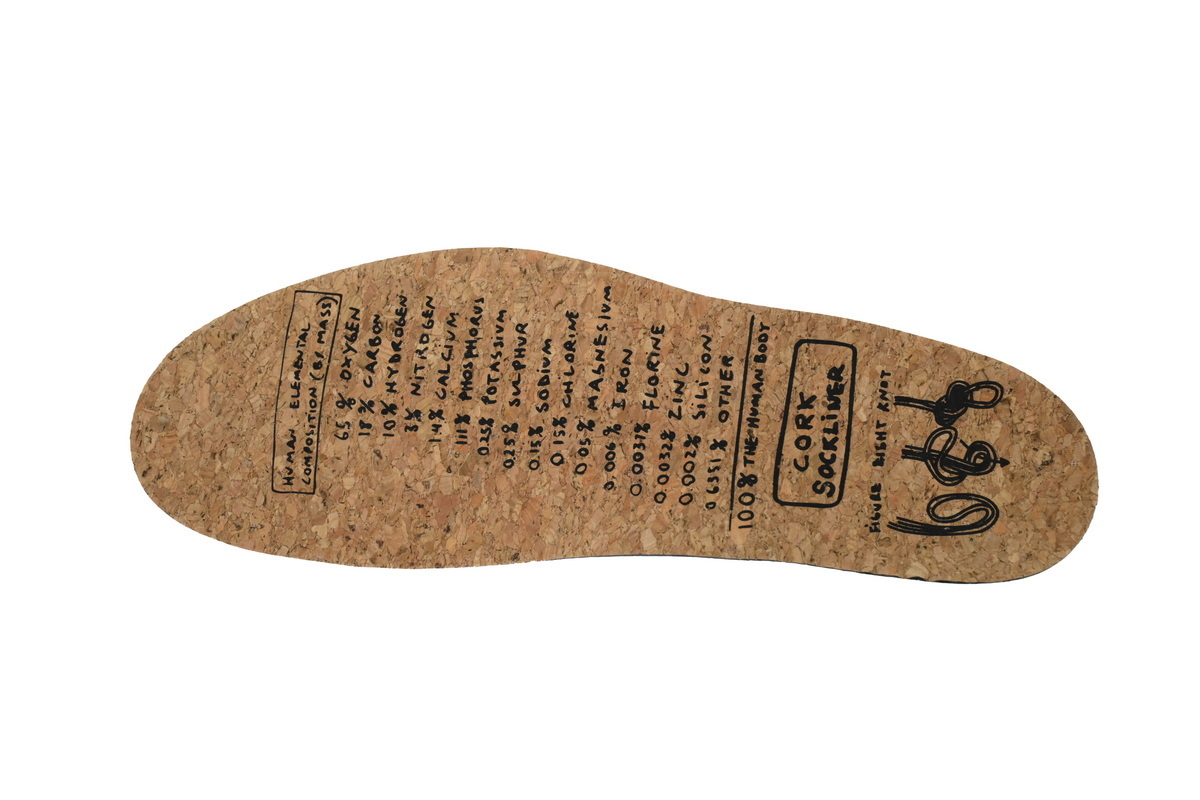 HUMAN ELEMENTAL
COMPOSITION (BR MASS)
65% OXYGEN
18% CARBON
10% HYDROGEN
3% NITROGEN
1.4% CALCIUM
1.1% PHOSPHORUS
0.25% POTASSIUM
0.25% SULPHUR
0.15% SODIUM
0.15% CHLORINE
0.05% MAGNESIUM
0.006% IRON
0.0037% FLORINE
0.0032% ZINC
0.002% SILICON
0.6351% OTHER
100% THE HUMAN BODY
CORK
SOCKLINER
FIGURE EIGHT KNOT